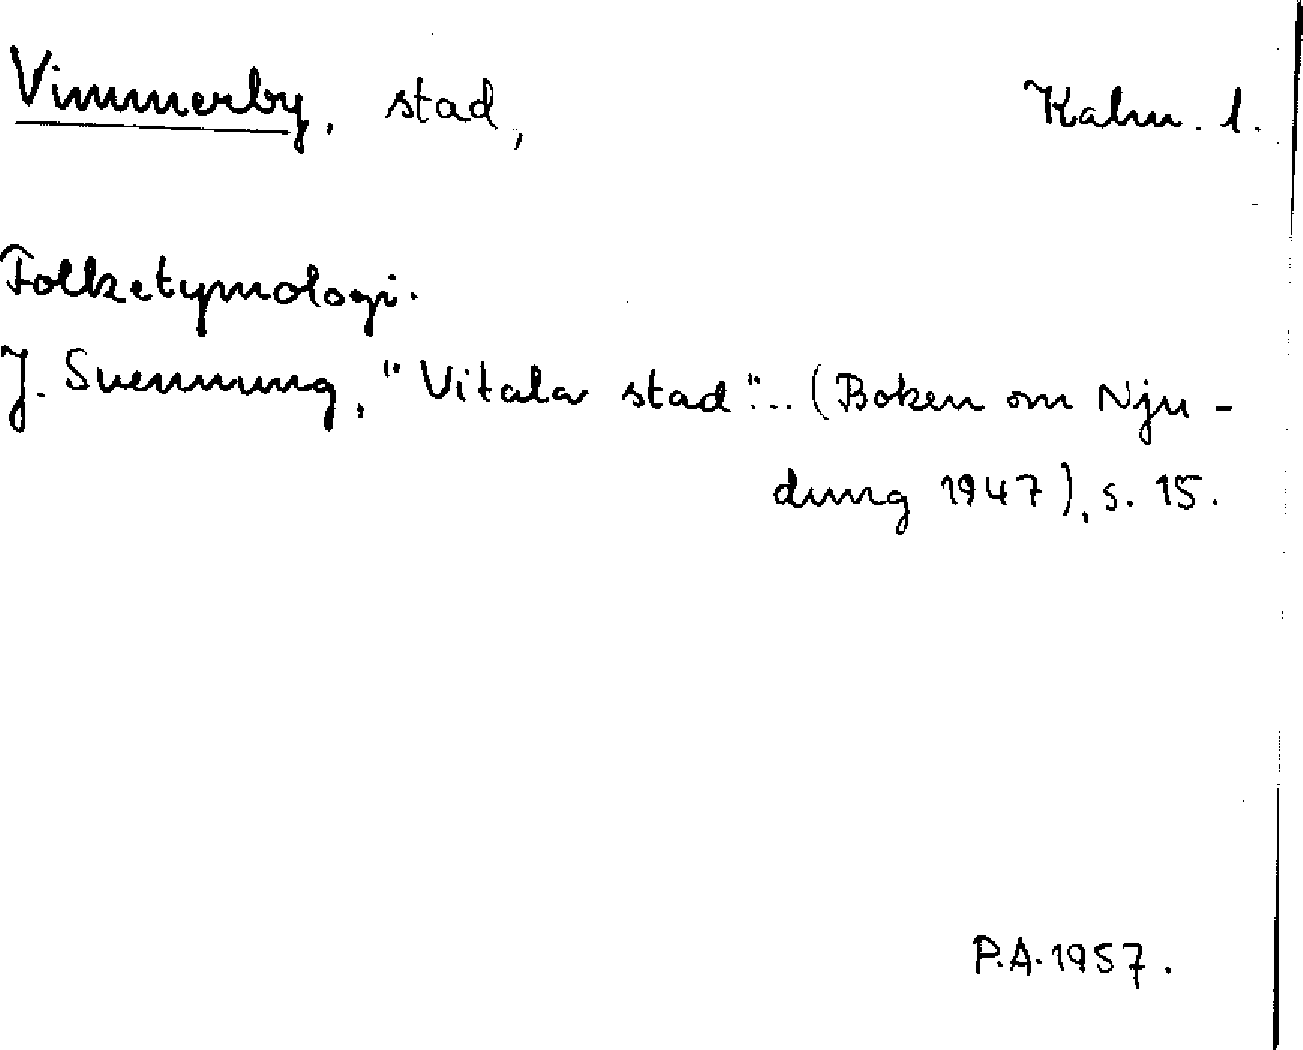 Vimmerby, stad, Kalm. l.
Folketymologi.
J. Svennung, "Vitala stad"... (Boken om Nju-
dung 1947), s. 15.
P.A. 1957.